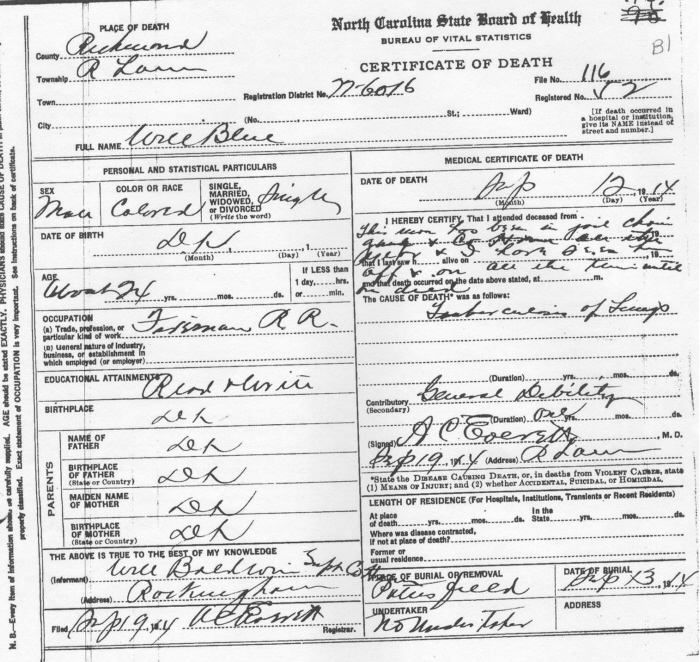 North Carolina State Board of Health
BUREAU OF VITAL STATISTICS
CERTIFICATE OF DEATH
PLACE OF DEATH
County Richmond
Township
Town
City
Registration District No.
File No. 116
Registered No.
(No. St.; Ward)
[If death occurred in a hospital or institution, give its NAME instead of street and number.]
FULL NAME Will Blue
B1
PERSONAL AND STATISTICAL PARTICULARS
SEX Male
COLOR OR RACE Colored
SINGLE, MARRIED, WIDOWED, OR DIVORCED (Write the word) Single
DATE OF BIRTH DK , 1
(Month) (Day) (Year)
AGE About 24 yrs. mos. ds.
If LESS than 1 day, hrs. or min.
OCCUPATION
(a) Trade, profession, or particular kind of work Fireman R R.
(b) General nature of industry, business, or establishment in which employed (or employer)
EDUCATIONAL ATTAINMENTS Read & Write
BIRTHPLACE DK
PARENTS
NAME OF FATHER DK
BIRTHPLACE OF FATHER (State or Country) DK
MAIDEN NAME OF MOTHER DK
BIRTHPLACE OF MOTHER (State or Country) DK
THE ABOVE IS TRUE TO THE BEST OF MY KNOWLEDGE
(Informant) Will Baldwin
(Address) Rockingham
Filed Sep 19, 1914 A C Everett Registrar.
MEDICAL CERTIFICATE OF DEATH
DATE OF DEATH Sep 12, 1914
(Month) (Day) (Year)
I HEREBY CERTIFY, That I attended deceased from
This man has been in jail chain
gang & Co Home
& I have seen
that I last saw h alive on
off & on all the time until
and that death occurred on the date above stated, at m.
he died
The CAUSE OF DEATH* was as follows:
Tuberculosis of Lungs
(Duration) yrs. mos. ds.
Contributory (Secondary) General Debility
(Duration) yrs. mos. ds.
(Signed) A C Everett, M. D.
Sep 19, 1914 (Address)
*State the DISEASE CAUSING DEATH, or, in deaths from VIOLENT CAUSES, state (1) MEANS OF INJURY; and (2) whether ACCIDENTAL, SUICIDAL, or HOMICIDAL.
LENGTH OF RESIDENCE (For Hospitals, Institutions, Transients or Recent Residents)
At place of death yrs. mos. ds. In the State yrs. mos. ds.
Where was disease contracted, if not at place of death?
Former or usual residence
PLACE OF BURIAL OR REMOVAL
DATE OF BURIAL Sep 13, 1914
UNDERTAKER No Undertaker
ADDRESS
N. B.—Every item of information should be carefully supplied. AGE should be stated EXACTLY. PHYSICIANS should state CAUSE OF DEATH in
properly classified. Exact statement of OCCUPATION is very important. See instructions on back of certificate.